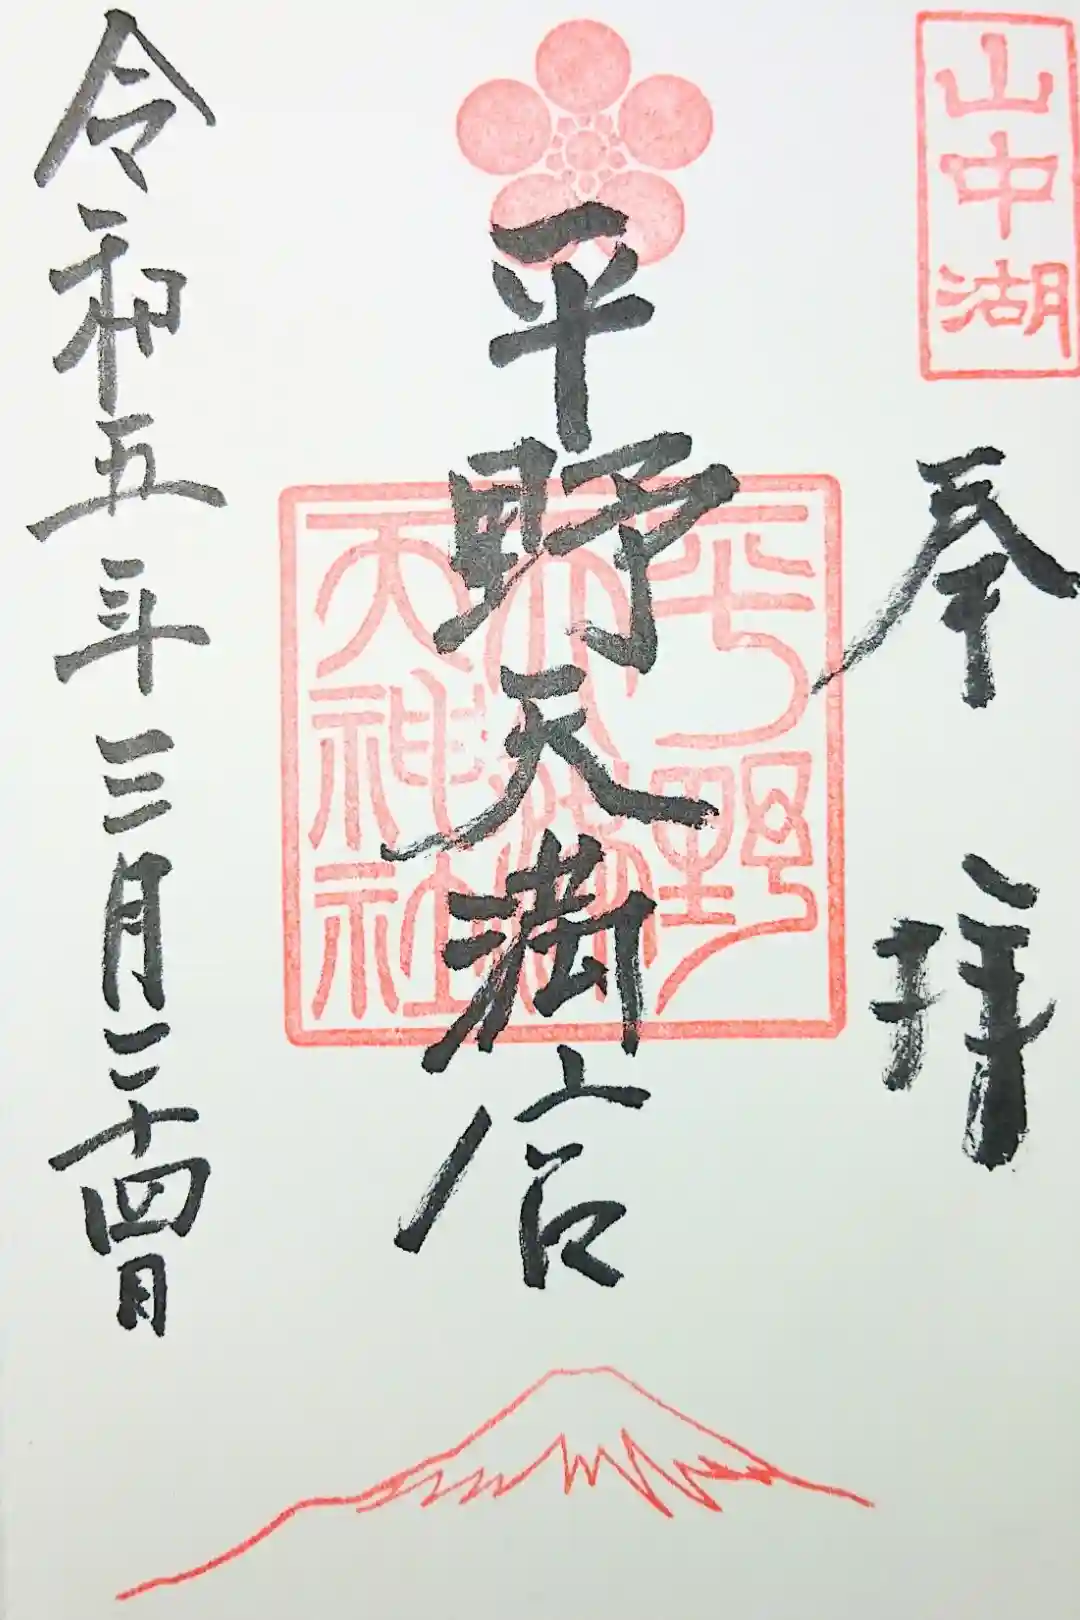 山中湖
奉拝
平野天満宮
平野
天神社
令和五年三月二十四日